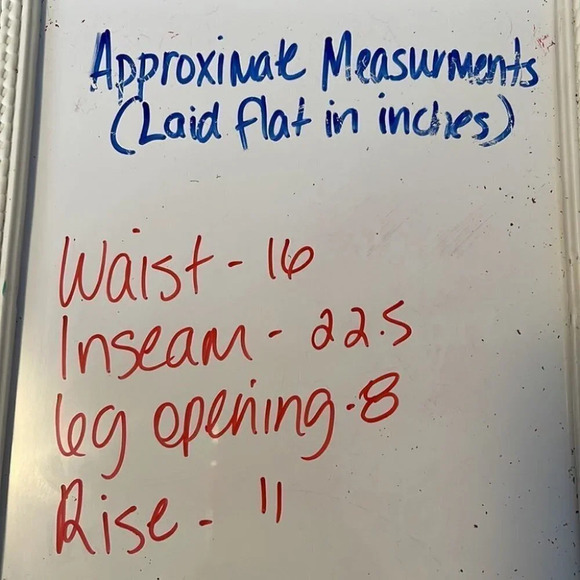 Approximate Measurments
(Laid flat in inches)
Waist - 16
Inseam - 22.5
leg opening - 8
Rise - 11